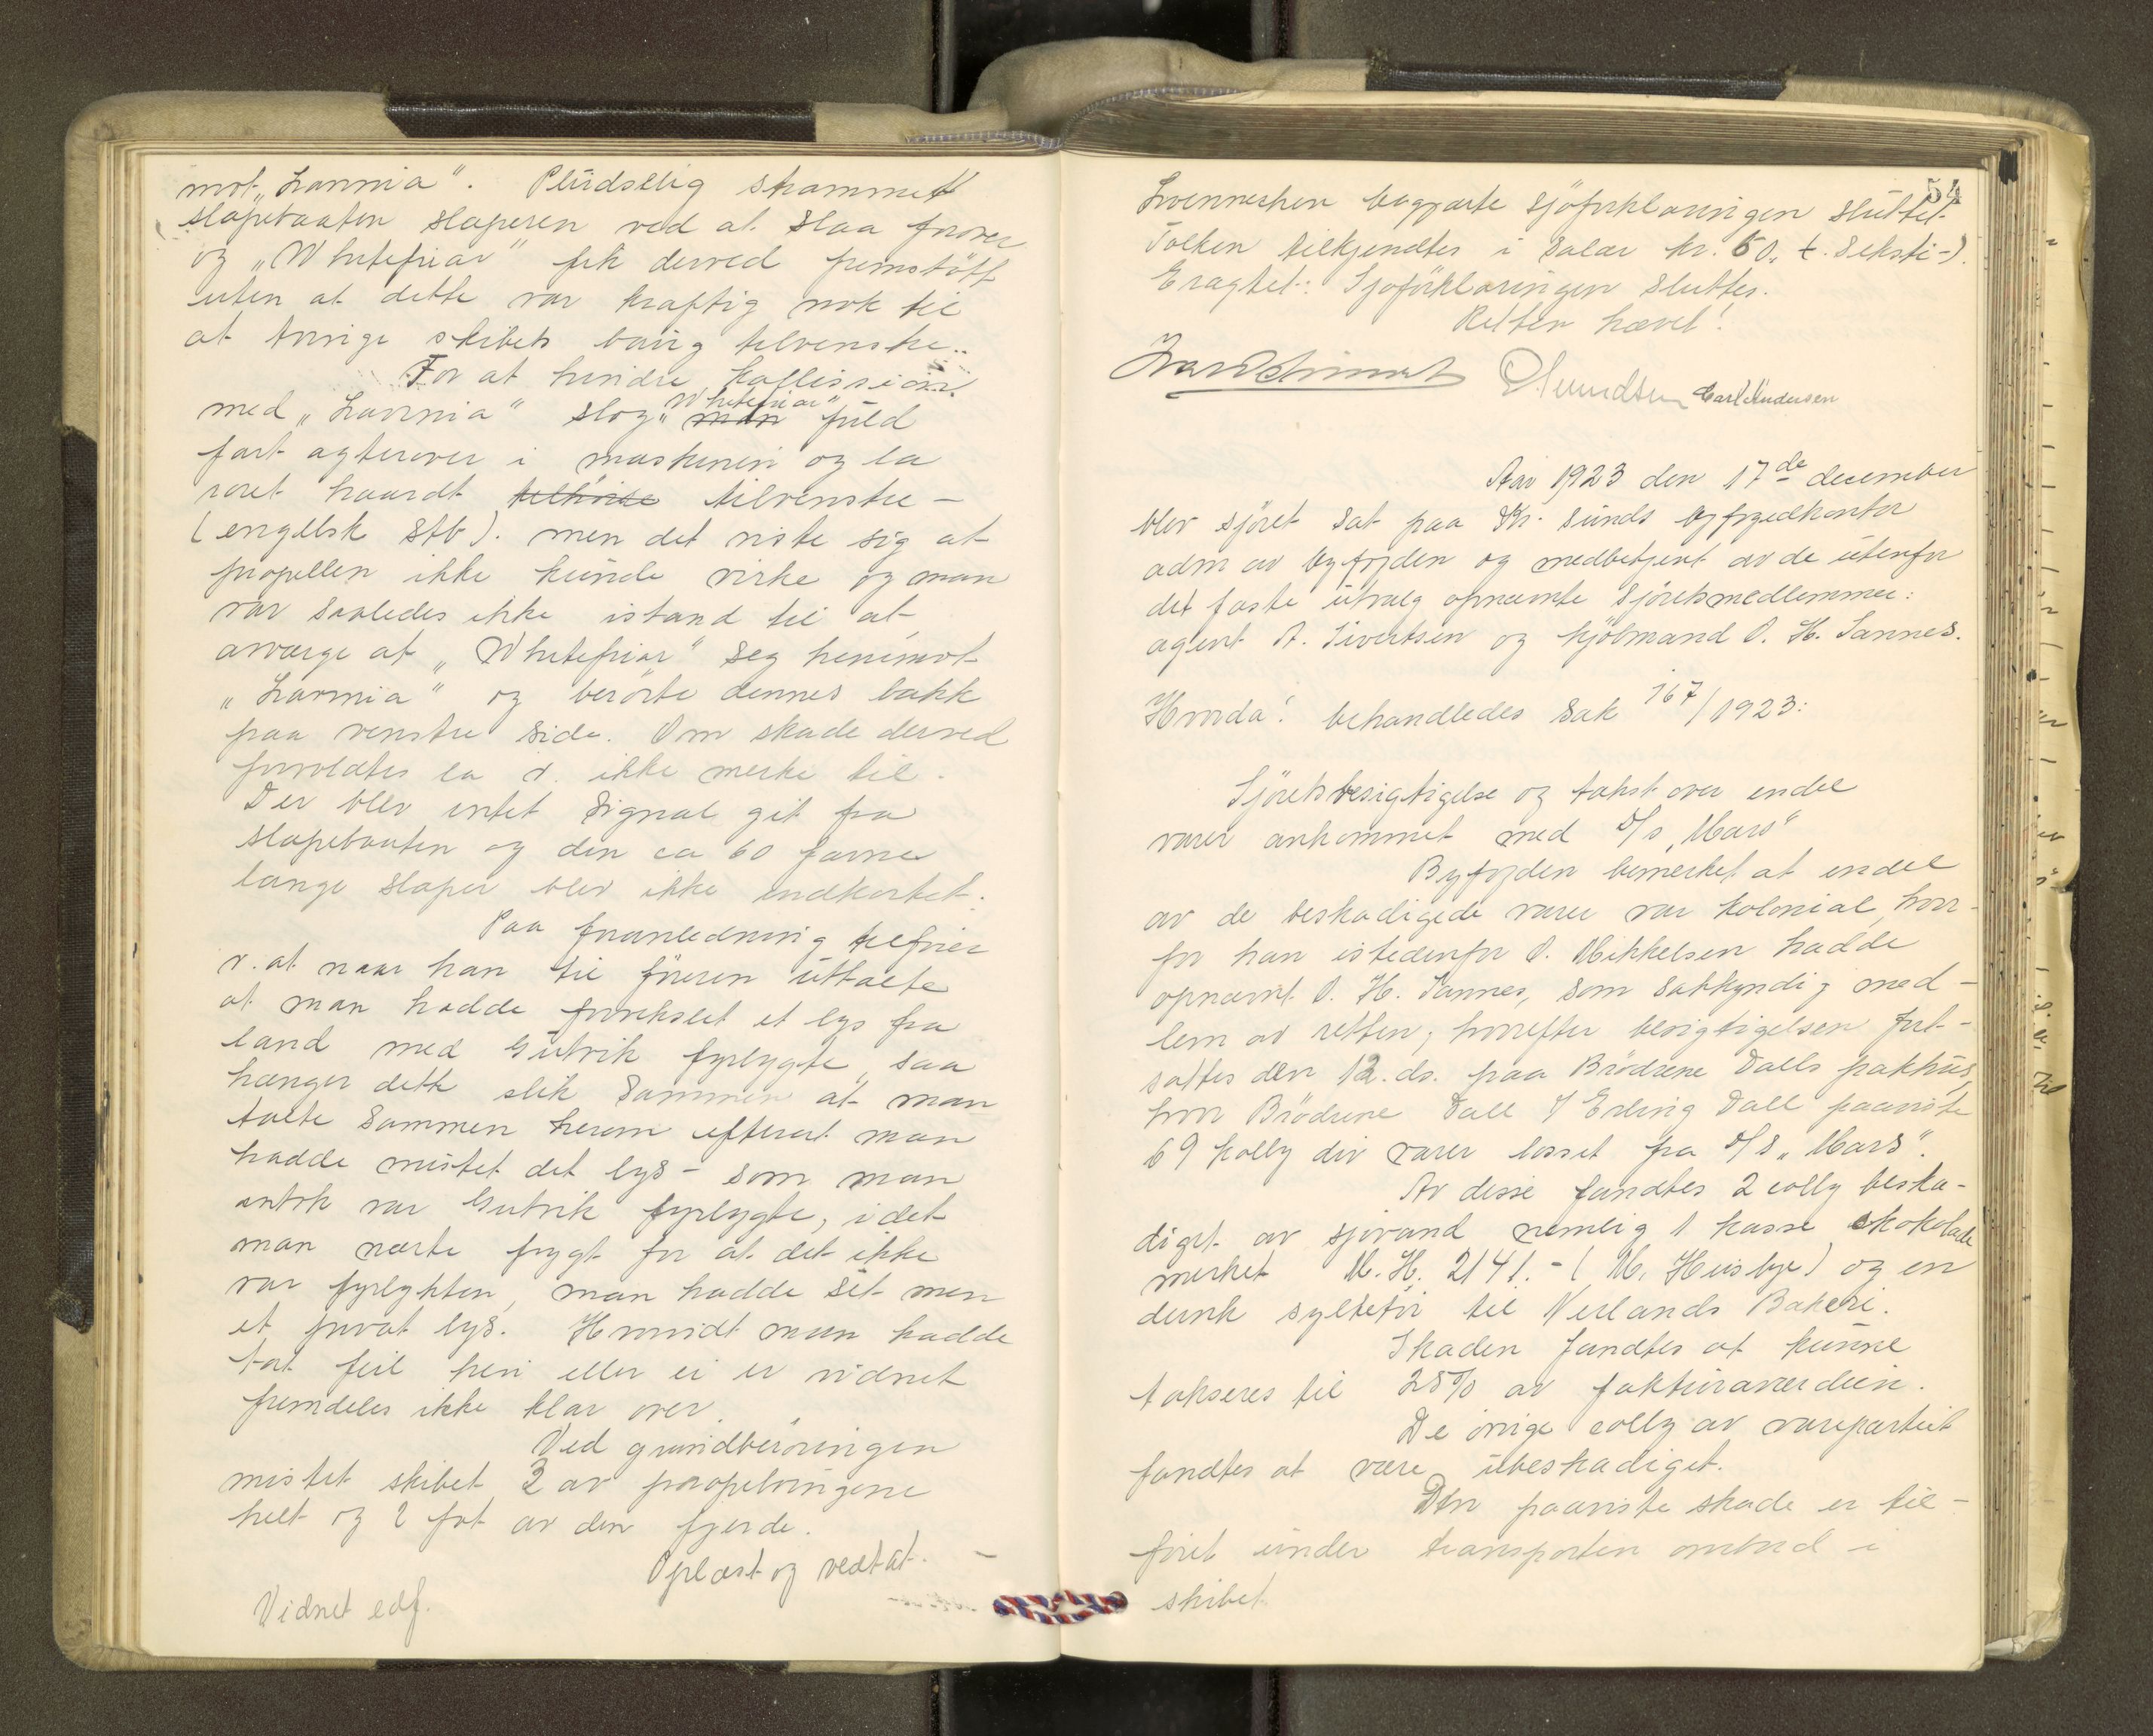 mot „Lavinia". Plüdselig skammet
slæpebaaten slæperen ved at slaa forover
og „Whitefriar" fik derved fremstött
uten at dette var kraftig nok til
at tvinge skibets baug tilvenstre..
For at hindre kollission
med „Lavinia" slog „Whitefriar" man füld
fart agterover i maskinen og la
roret haardt tilhöire tilvenstre –
(engelsk Stb). men det viste sig at
propellen ikke künde virke og man
var saaledes ikke istand til at
avværge at „Whitefriar" seg henimot
„Lavinia" og berörte dennes bakk
paa venstre side. Om skade derved
forvoldtes la v. ikke merke til.
Der blev intet signal git fra
slæpebaaten og den ca 60 favne
lange slæper blev ikke indkortet.
Paa foranledning tilföier
v. at naar han til föreren üttalte
at man hadde forvekslet et lys fra
land med Gütvik fyrlygte, saa
hænger dette slik sammen at man
talte sammen herom efterat man
hadde mistet det lys – som man
antok var Gutvik fyrlygte, idet
man nærte frygt for at det ikke
var fyrlykten, man hadde set men
et privat lys. Hvorvidt man hadde
tat feil heri eller ei er vidnet
fremdeles ikke klar over.
Ved grundberöringen
mistet skibet 3 av propelvingene
helt og 2 fot av den fjerde.
Oplæst og vedtat. –
Vidnet edf.
54
hvormed begjærte sjöforklaringen sluttet.
Tolken tilkjendtes i salær kr. 60. t. seksti –).
Eragtet: Sjöforklaringen sluttes.
Retten hævet!
Carl Andersen
Aar 1923 den 17de december
blev sjöret sat paa Kr. sünds byfogedkontor
adm av byfogden og medbetjent av de ütenfor
det faste ütvalg opnævnte sjöretsmedlemmer:
agent A. Sivertsen og kjöbmand O. H. Sannes.
Hvorda! behandledes sak 167/1923:
Sjöretsbesigtigelse og takst over endel
varer ankommet med D/s „Mars"
Byfogden bemerket at endel
av de beskadigede varer var kolonial, hvor-
for han istedenfor O. Mikkelsen hadde
opnævnt O. H. Sannes, som sakkyndig med-
lem av retten, hvorefter besigtigelsen fort-
sattes den 12. ds. paa Brödrene Dalls pakhüs,
hvor Brödrene Dall v/ Erling Dall paaviste
69 kolly div varer losset fra D/S „Mars".
Av disse fandtes 2 colly beska-
diget av sjövand nemlig 1 kasse skokolade
merket M. H. 2141. – (M. Hüsbye) og en
dunk syltetöi til Nerlands Bakeri.
Skaden fandtes at künne
takseres til 25% av faktüraværdien.
De övrige colly av varepartiet
fandtes at være übeskadiget.
Den paaviste skade er til-
föiet ünder transporten ombord i
skibet